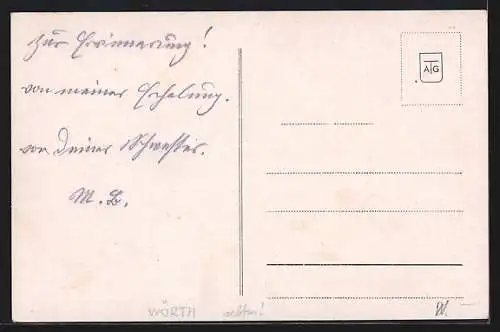 zur Erinnerung!
von meiner Erholung.
von Deiner Schwester.
M. L.
ATG
WÖRTH selten!